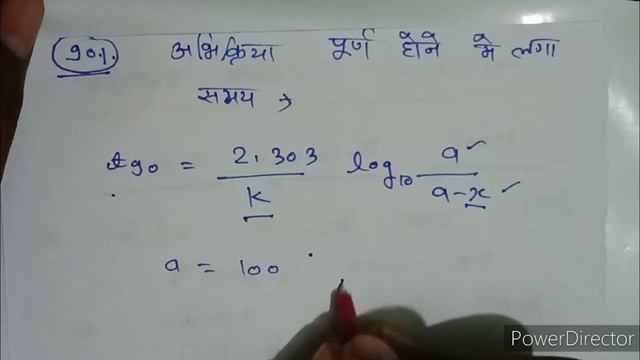 90%. अभिक्रिया पूर्ण होने मे लगा
समय →
t90 = 2.303/K log10 a/a-x
a = 100
PowerDirector